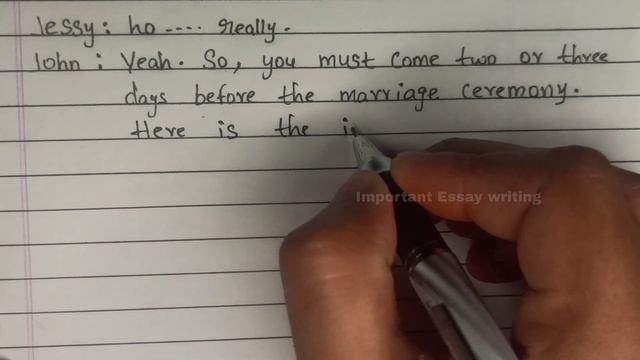 Jessy: ho .... really.
John : Yeah. So, you must come two or three
days before the marriage ceremony.
Here is the i
Important Essay writing